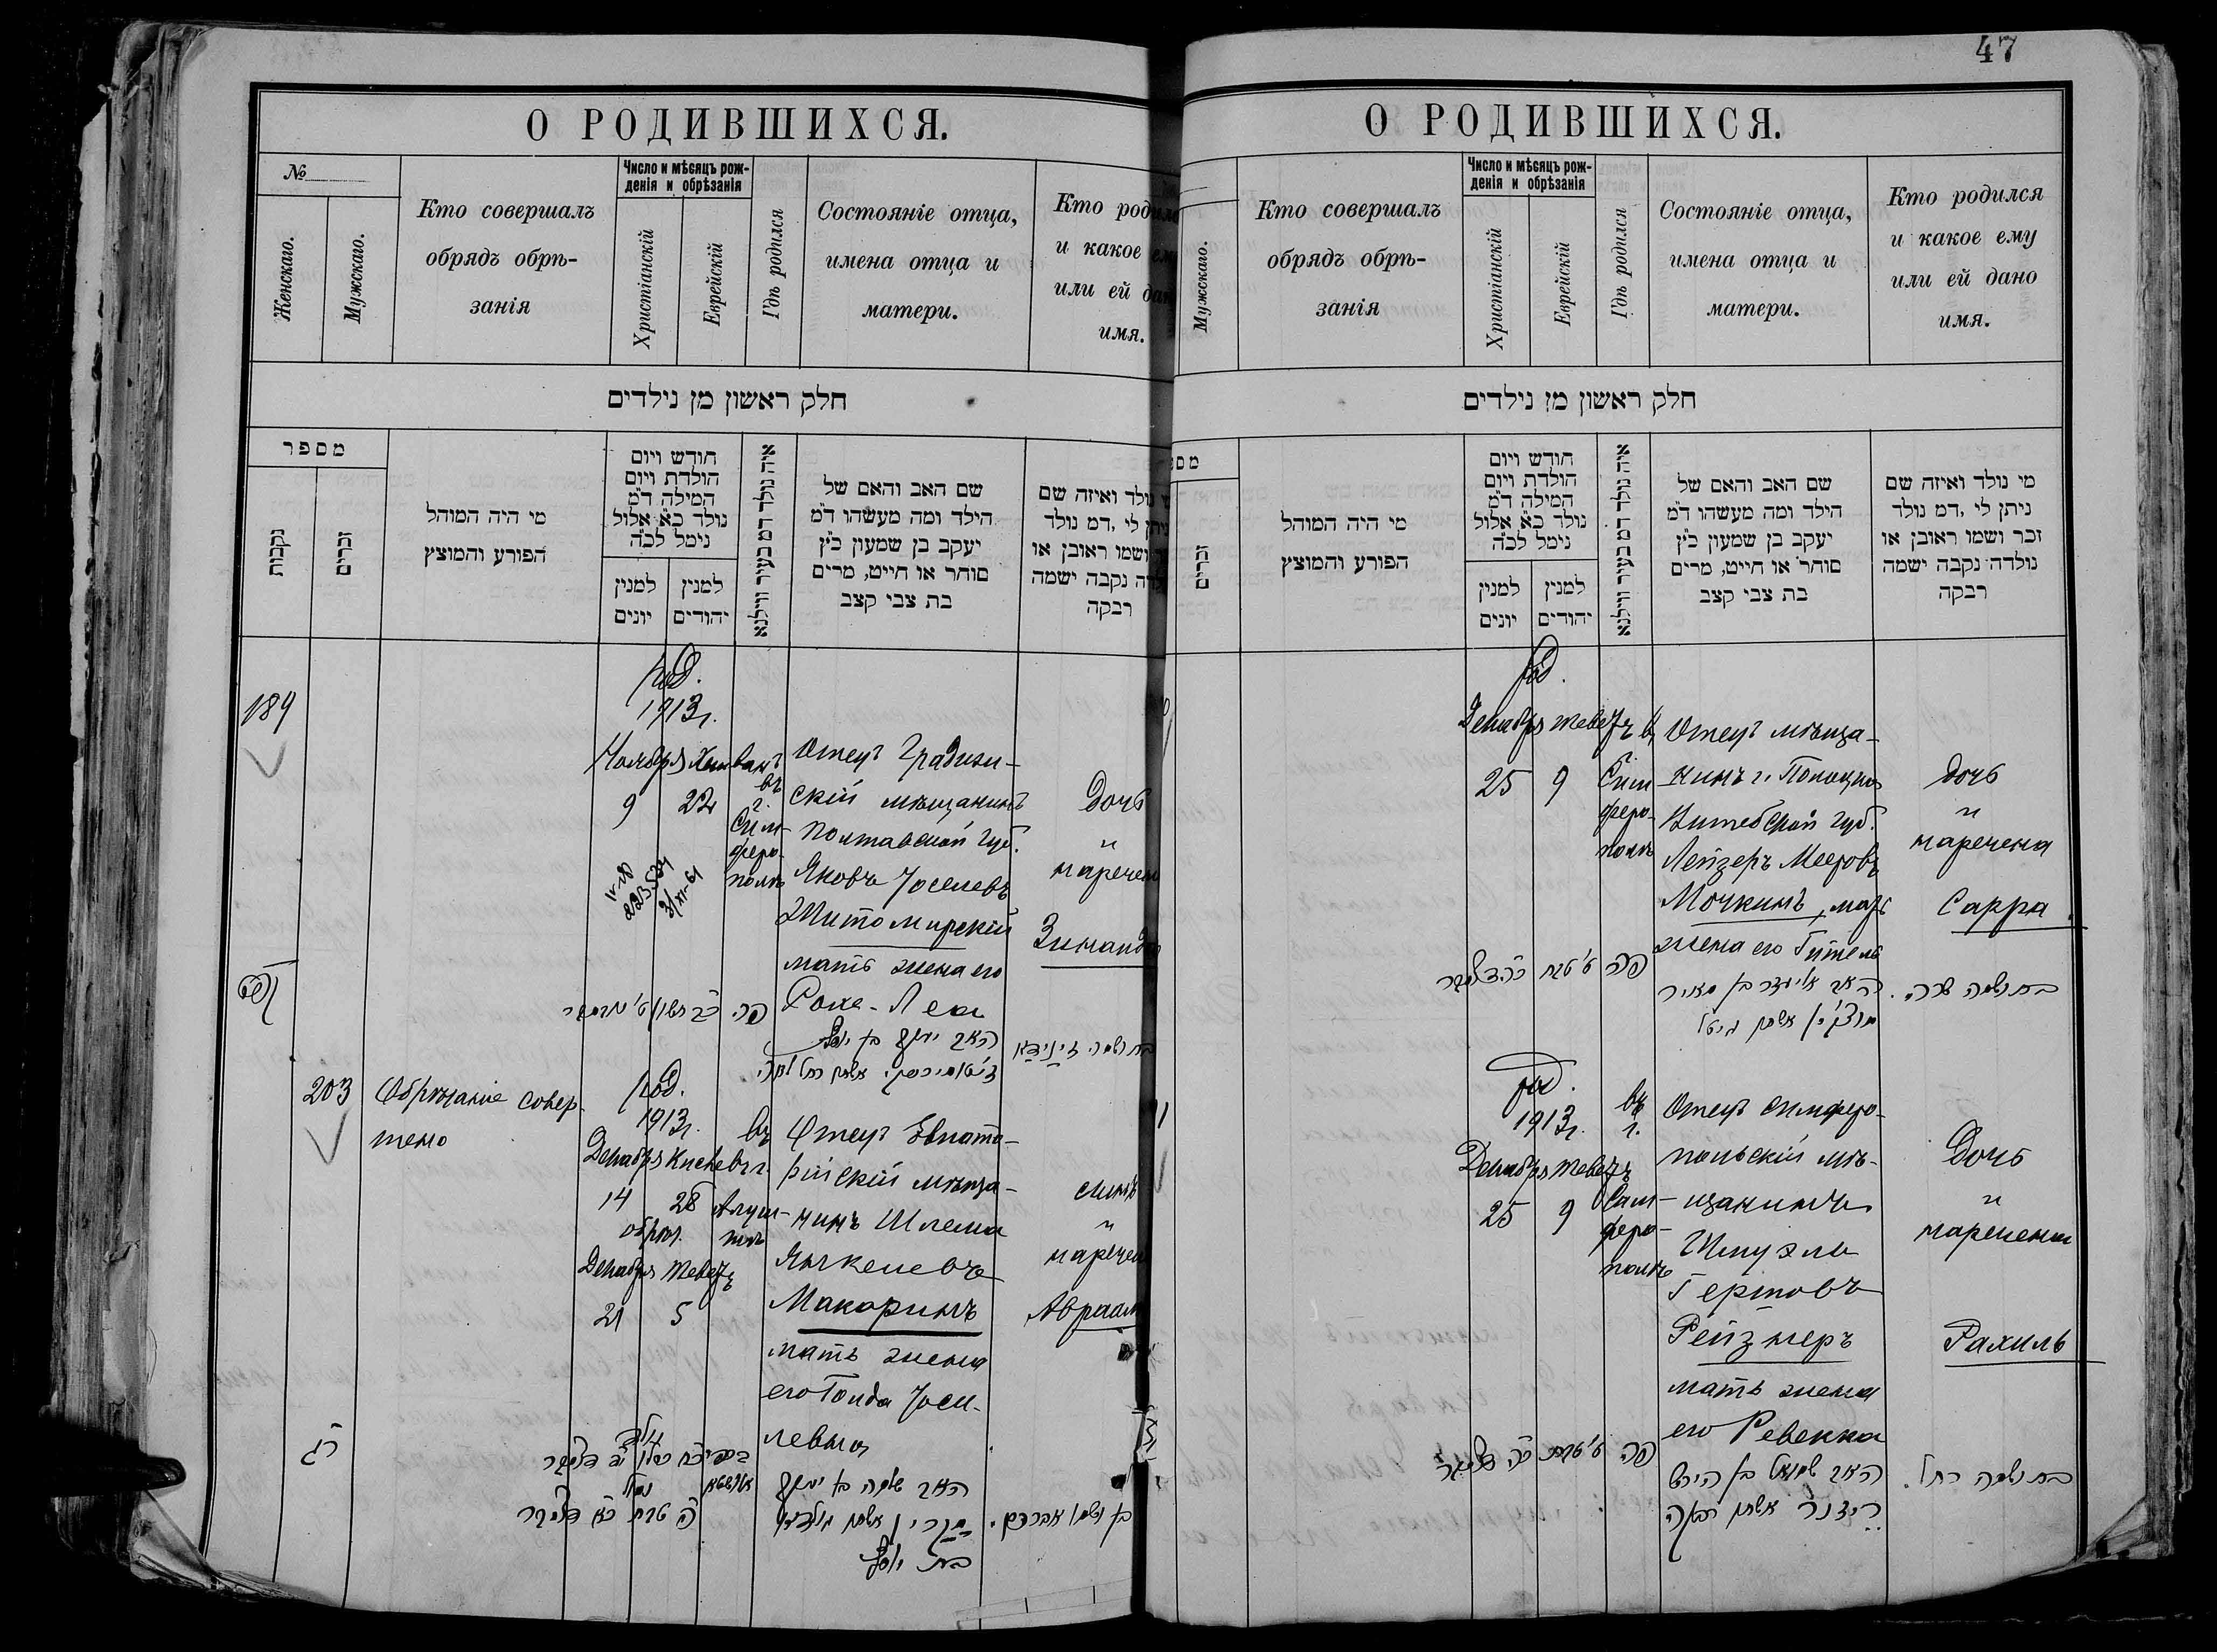 47
О РОДИВШИХСЯ.
№
Женскаго.
Мужскаго.
Кто совершалъ
обрядъ обрѣ-
занія
Число и мѣсяцъ рож-
денія и обрѣзанія
Христіанскій
Еврейскій
Гдѣ родился
Состояніе отца,
имена отца и
матери.
Кто родился
и какое ему
или ей дано
имя.
חלק ראשון מן נילדים
מספר
נקבות
זכרים
מי היה המוהל
הפורע והמוצץ
חודש ויום
הולדת ויום
המילה ד״מ
נולד כ״א אלול
נימל לכ״ה
למנין
יונים
למנין
יהודים
איה נולד דמ בעיר ווילנא
שם האב והאם של
הילד ומה מעשהו ד״מ
יעקב בן שמעון כ״ץ
סוחר או חייט, מרים
בת צבי קצב
נולד ואיזה שם
ניתן לי ,דמ נולד
ושמו ראובן או
נקבה ישמה
רבקה
189
род.
1913 г.
Ноября Хешванъ
9 22
въ
г.
Сим-
феро-
полѣ
Отецъ Градиж-
скій мѣщанинъ
Полтавской губ.
Яковъ Іоселевъ
Житомирскій
мать жена его
Рохе-Леа
Дочь
и
наречена
Зинаида
האב יעקב בן יוסף
203
Обрѣзаніе совер-
шено
род.
1913 г.
Декабря Кислевъ
14 28
въ
г.
Алуш-
тѣ
обрѣз.
Декабря Теветъ
21 5
Отецъ Евпато-
рійскій мѣща-
нинъ Шлема
Янкелевъ
Макаринъ
мать жена
его Голда Іосе-
левна
сынъ
и
наречен
Авраам
רג
האב שלמה בן יעקב
בת יוסף
בן ושמו אברהם.
О РОДИВШИХСЯ.
Мужскаго.
Кто совершалъ
обрядъ обрѣ-
занія
Число и мѣсяцъ рож-
денія и обрѣзанія
Христіанскій
Еврейскій
Гдѣ родился
Состояніе отца,
имена отца и
матери.
Кто родился
и какое ему
или ей дано
имя.
חלק ראשון מן נילדים
זכרים
מי היה המוהל
הפורע והמוצץ
חודש ויום
הולדת ויום
המילה ד״מ
נולד כ״א אלול
נימל לכ״ה
למנין
יונים
למנין
יהודים
איה נולד דמ בעיר ווילנא
שם האב והאם של
הילד ומה מעשהו ד״מ
יעקב בן שמעון כ״ץ
סוחר או חייט, מרים
בת צבי קצב
מי נולד ואיזה שם
ניתן לי ,דמ נולד
זכר ושמו ראובן או
נולדה נקבה ישמה
רבקה
род.
Декабря Теветъ въ
25 9
Сим
феро-
полѣ
Отецъ мѣща-
нинъ г. Полоцка
Витебской губ.
Лейзеръ Мееровъ
Мочкинъ, мать
жена его Гитель
дочь
и
наречена
Сарра
האב אליעזר בן מאיר
בת ושמה שרה.
род.
1913 г.
Декабря Теветъ
25 9
въ
г.
Сим-
феро-
полѣ
Отецъ симферо-
польскій мѣ-
щанинъ
Шмуэль
Герцовъ
Рейзнеръ
мать жена
его Ревекка
Дочь
и
наречена
Рахиль
האב שמואל בן הירש
רייזנר אשתו רבקה
בת ושמה רחל.